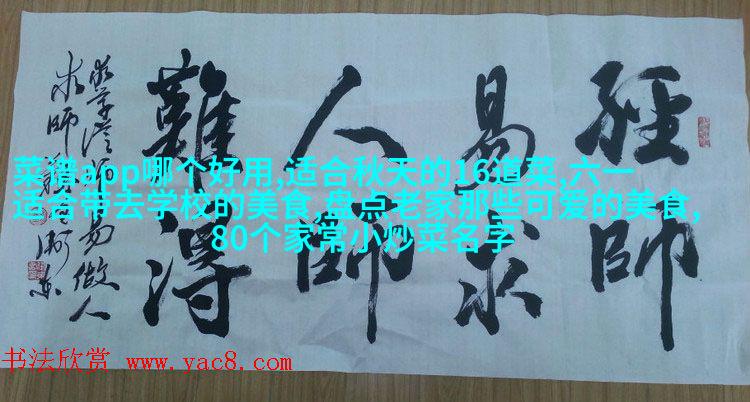 經師
易求
人師
難得
菜谱app哪个好用,适合秋天的16道菜,六一
适合带去学校的美食,盘点老家那些可爱的美食,
80个家常小炒菜名字
书法欣赏 www.yac8.com